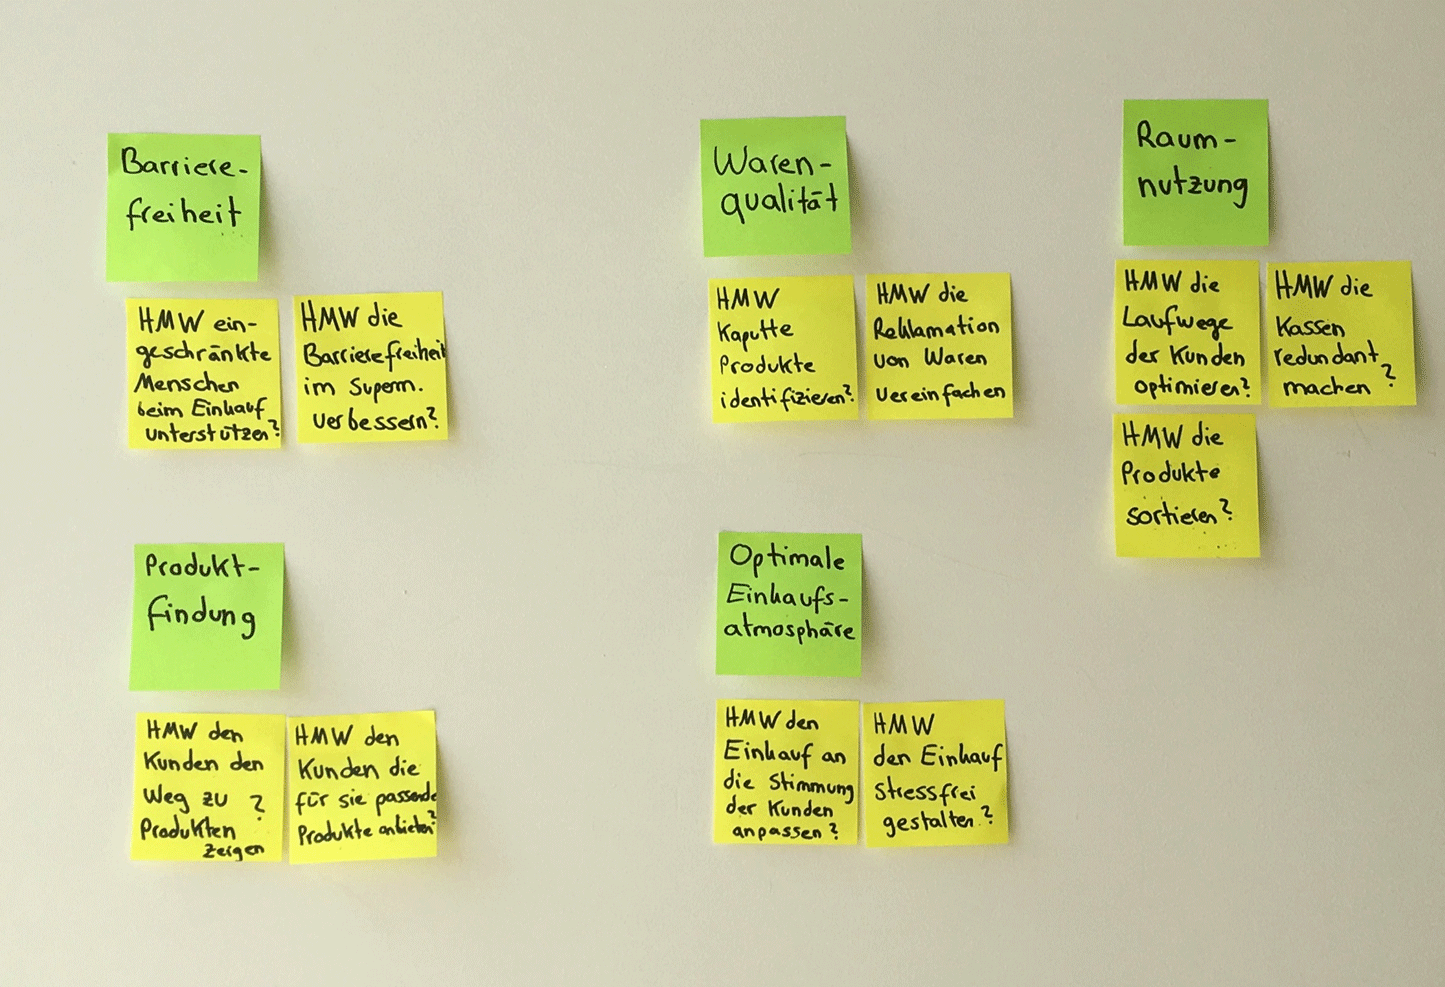 Barriere-
freiheit
HMW ein-
geschränkte
Menschen
beim Einkauf
unterstützen?
HMW die
Barrierefreiheit
im Superm.
verbessern?
Waren-
qualität
HMW
Kaputte
Produkte
identifizieren?
HMW die
Reklamation
von Waren
vereinfachen
Raum-
nutzung
HMW die
Laufwege
der Kunden
optimieren?
HMW die
Kassen
redundant
machen?
HMW die
Produkte
sortieren?
Produkt-
findung
HMW den
Kunden den
Weg zu ?
Produkten
zeigen
HMW den
Kunden die
für sie passende
Produkte anbieten?
Optimale
Einkaufs-
atmosphäre
HMW den
Einkauf an
die Stimmung
der Kunden
anpassen?
HMW
den Einkauf
stressfrei
gestalten?